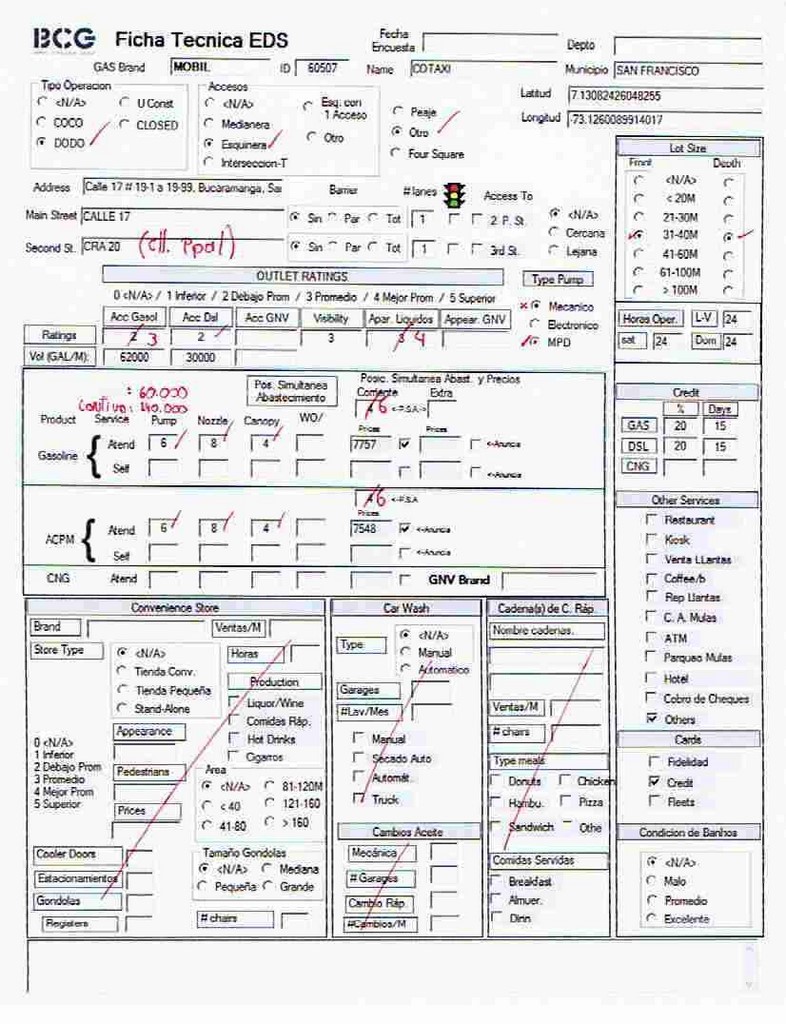 BCG Ficha Tecnica EDS
Fecha Encuesta
Depto
GAS Brand MOBIL ID 60507 Name COTAXI Municipio SAN FRANCISCO
Tipo Operacion
<N/A> U Const
COCO CLOSED
DODO
Accesos
<N/A> Esq. con 1 Acceso
Medianera
Esquinera Otro
Interseccion-T
Peaje
Otro
Four Square
Latitud 7.13082426048255
Longitud -73.1260089914017
Address Calle 17 # 19-1 a 19-99, Bucaramanga, Sar
Main Street CALLE 17
Second St. CRA 20 (Cll. Ppal)
Barrier #lanes Access To
Sin Par Tot 1 2 P. St.
Sin Par Tot 1 3rd St.
<N/A>
Cercana
Lejana
Lot Size
Front Depth
<N/A>
< 20M
21-30M
31-40M
41-60M
61-100M
> 100M
OUTLET RATINGS
0 <N/A> / 1 Inferior / 2 Debajo Prom / 3 Promedio / 4 Mejor Prom / 5 Superior
Acc Gasol Acc Dsl Acc GNV Visibility Apar. Liquidos Appear. GNV
Ratings 2 3 2 3 3 4
Vol (GAL/M): 62000 30000
Type Pump
Mecanico
Electronico
MPD
Horas Oper. L-V 24
sat 24 Dom 24
: 60.000
Cautivo: 140.000
Pos. Simultanea Abastecimiento
Posic. Simultanea Abast. y Precios
Corriente Extra
6 <-P.S.A->
Product Service Pump Nozzle Canopy WO/ Prices Prices
Gasoline Atend 6 8 4 7757 <-Anuncia
Self <-Anuncia
6 <-P.S.A
Prices
ACPM Atend 6 8 4 7548 <-Anuncia
Self <-Anuncia
CNG Atend GNV Brand
Credit
% Days
GAS 20 15
DSL 20 15
CNG
Other Services
Restaurant
Kiosk
Venta LLantas
Coffee/b
Rep Llantas
C. A. Mulas
ATM
Parqueo Mulas
Hotel
Cobro de Cheques
Others
Cards
Fidelidad
Credit
Fleets
Condicion de Banhos
<N/A>
Malo
Promedio
Excelente
Convenience Store
Brand Ventas/M
Store Type
<N/A>
Tienda Conv.
Tienda Pequeña
Stand-Alone
Horas
Production
Liquor/Wine
Comidas Ráp.
Hot Drinks
Cigarros
0 <N/A>
1 Inferior
2 Debajo Prom
3 Promedio
4 Mejor Prom
5 Superior
Appearance
Pedestrians
Prices
Area
<N/A> 81-120M
< 40 121-160
41-80 > 160
Cooler Doors
Estacionamientos
Gondolas
Registers
Tamaño Gondolas
<N/A> Mediana
Pequeña Grande
# chairs
Car Wash
Type
<N/A>
Manual
Automatico
Garages
#Lav/Mes
Manual
Secado Auto
Automát.
Truck
Cambios Aceite
Mecánica
# Garages
Cambio Ráp
#Cambios/M
Cadena(s) de C. Ráp.
Nombre cadenas.
Ventas/M
# chairs
Type meals
Donuts Chicken
Hambu. Pizza
Sandwich Othe
Comidas Servidas
Breakfast
Almuer.
Dinn